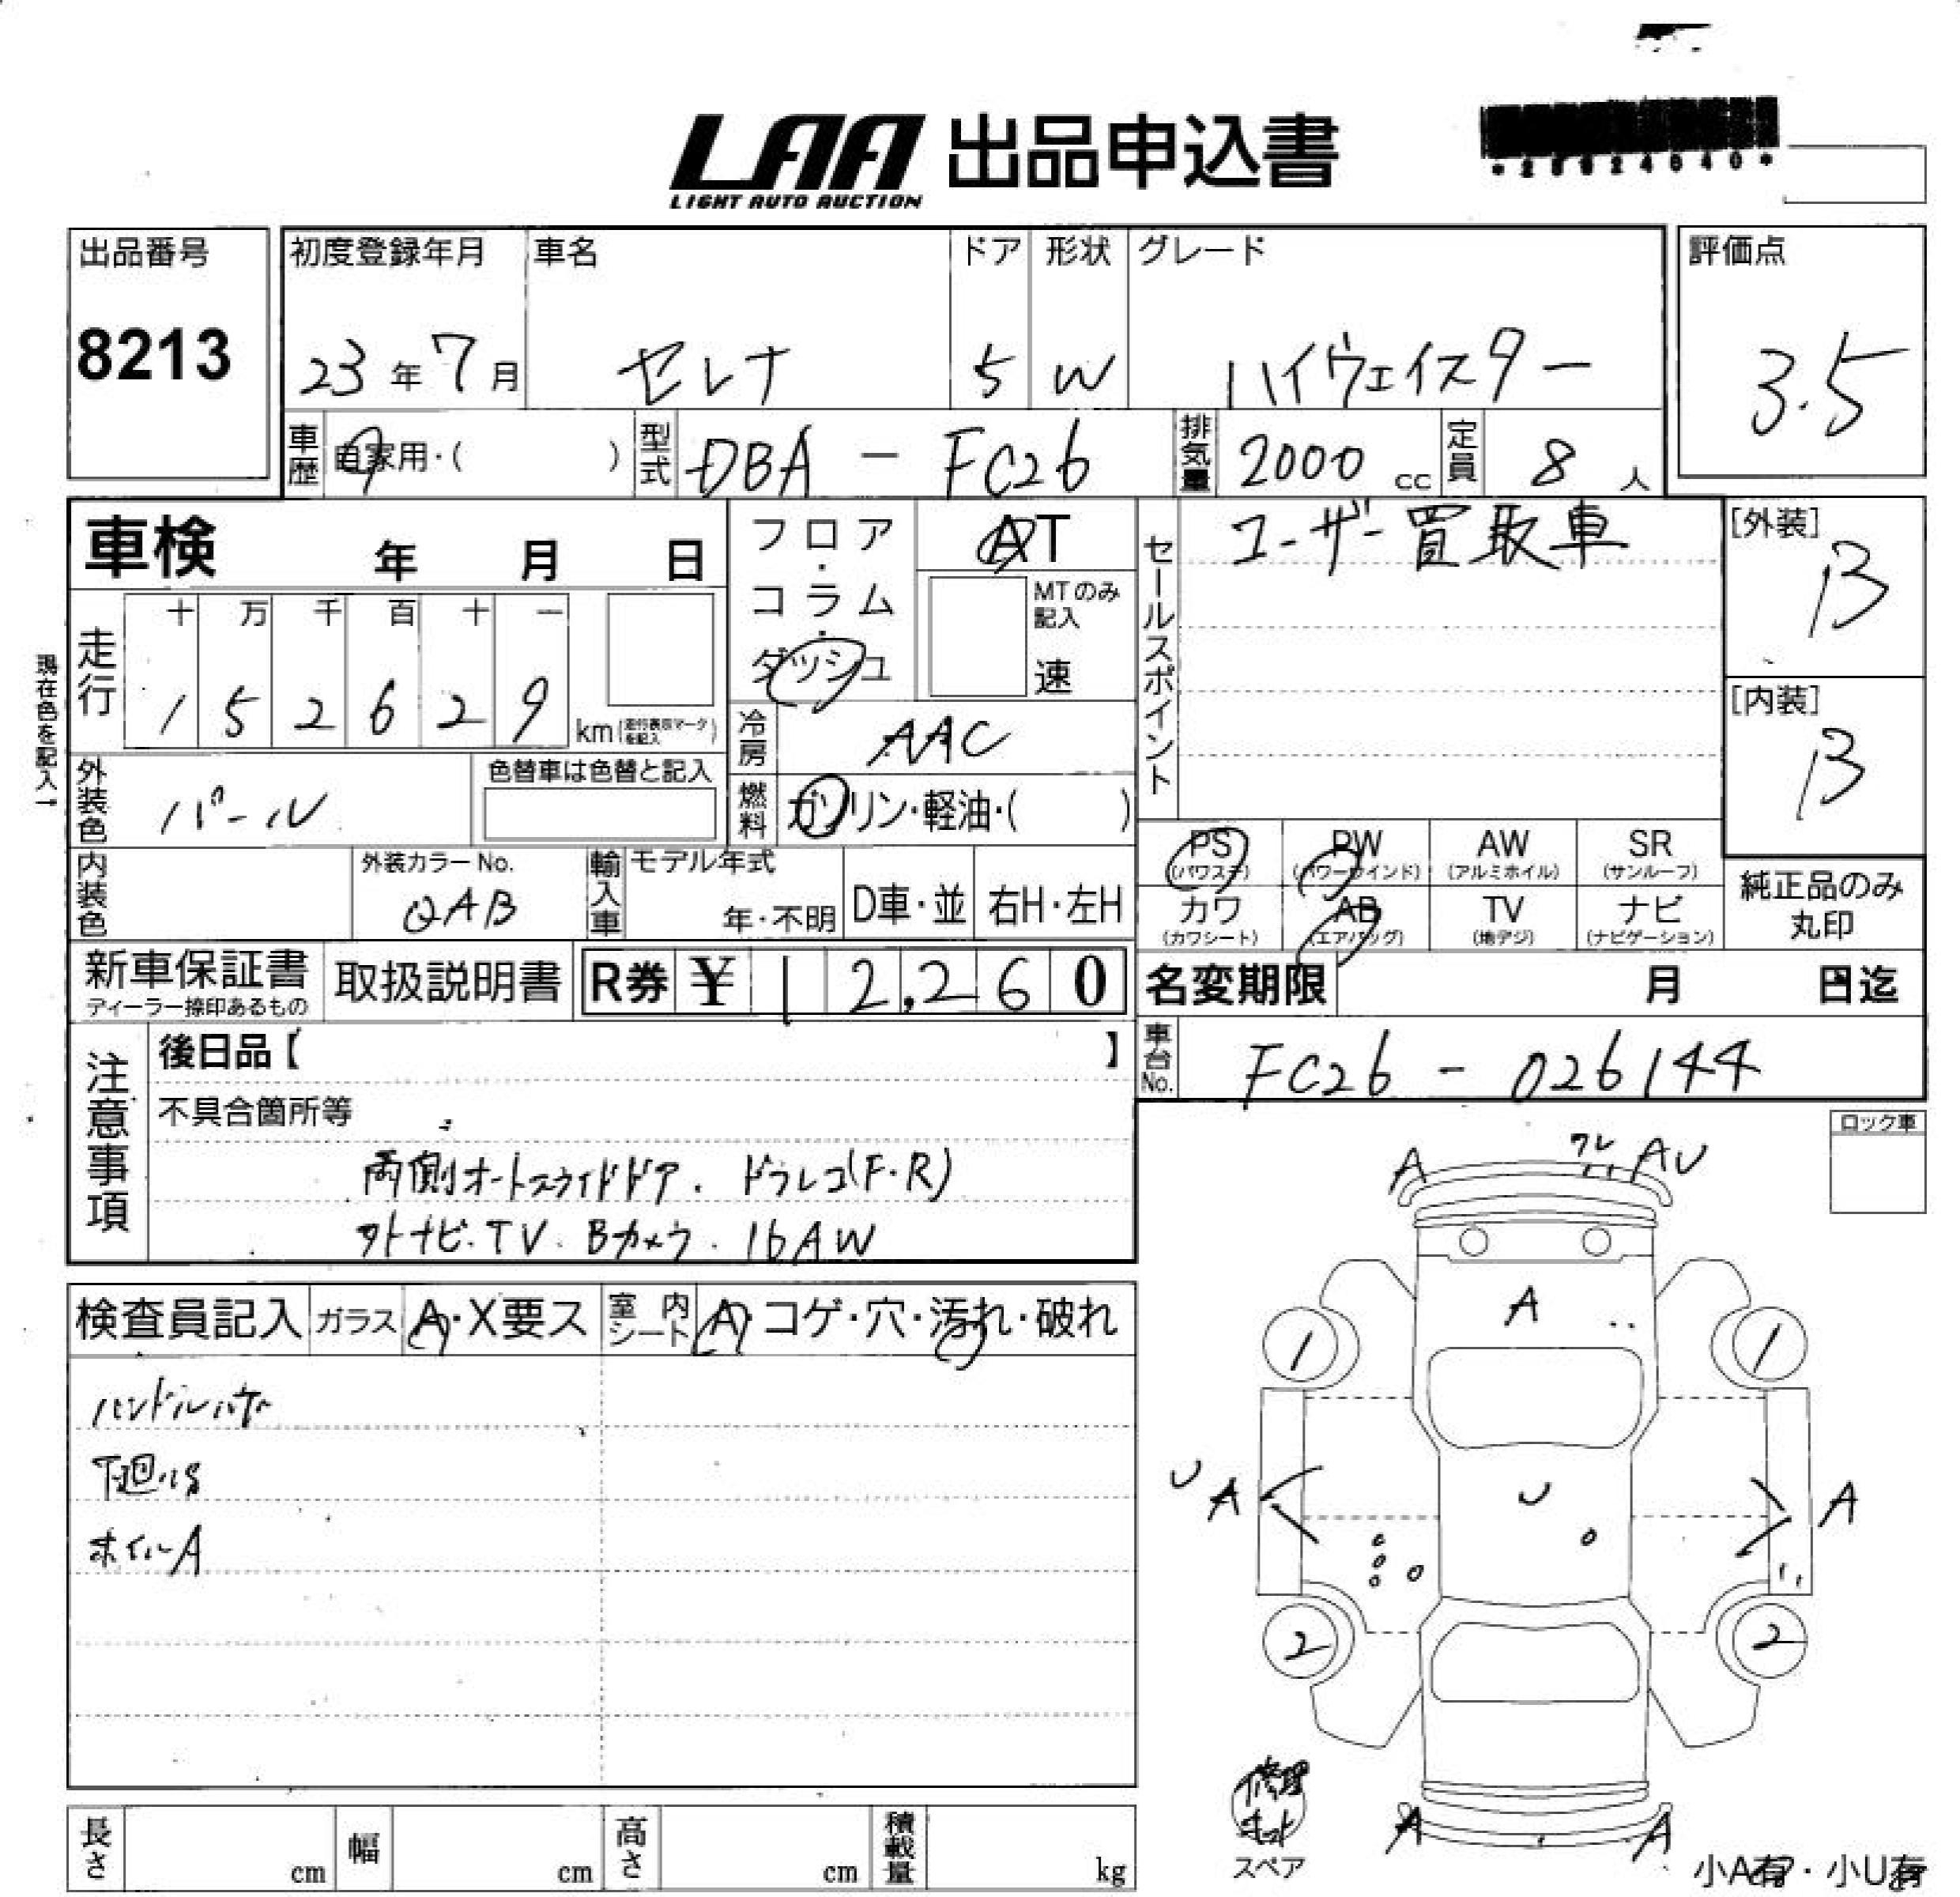 LAA 出品申込書
LIGHT AUTO AUCTION
出品番号
8213
初度登録年月
23年7月
車名
セレナ
ドア
5
形状
W
グレード
ハイウェイスター
評価点
3.5
車歴
自家用・( )
型式
DBA - FC26
排気量
2000 cc
定員
8人
車検 年 月 日
フロア・コラム・ダッシュ
AT
MTのみ記入
速
セールスポイント
ユーザー買取車
[外装]
B
[内装]
B
現在色を記入→
走行
十 万 千 百 十 一
1 5 2 6 2 9
km(走行表示マークを記入)
冷房
AAC
外装色
パール
色替車は色替と記入
燃料
ガソリン・軽油・( )
PS
(パワステ)
PW
(パワーウインド)
AW
(アルミホイル)
SR
(サンルーフ)
カワ
(カワシート)
AB
(エアバッグ)
TV
(地デジ)
ナビ
(ナビゲーション)
純正品のみ
丸印
内装色
外装カラーNo.
QAB
輸入車
モデル年式
年・不明
D車・並
右H・左H
新車保証書
ディーラー捺印あるもの
取扱説明書
R券 ¥ 12,260
名変期限 月 日迄
車台No.
FC26 - 026144
注意事項
後日品【 】
不具合箇所等
両側オートスライドドア. ドラレコ(F・R)
外ナビ. TV. Bカメラ. 16AW
ロック車
検査員記入
ガラス
A・X要ス
室内シート
A・コゲ・穴・汚れ・破れ
下廻
ホイルA
A
ワレ AU
A
1
1
U A
U
A
2
2
修理キット
スペア
A
A
小A有・小U有
長さ cm
幅 cm
高さ cm
積載量 kg